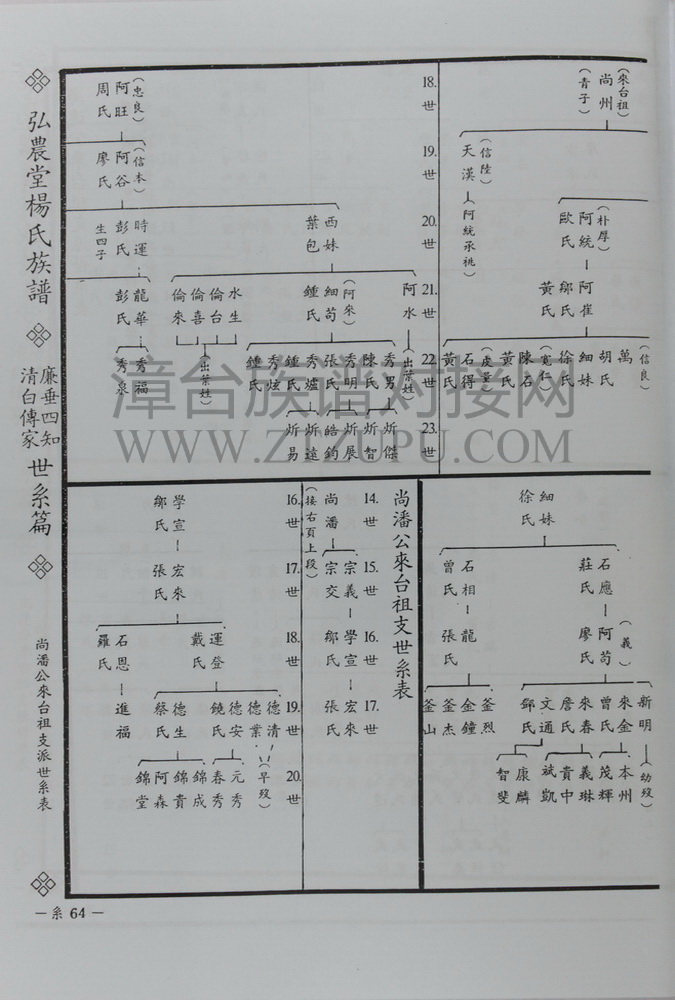 弘農堂楊氏族譜
廉垂四知
清白傳家
世系篇
尚潘公來台祖支派世系表
—系 64—
18.世
19.世
20.世
21.世
22.世
23.世
(來台祖)
尚州
(青子)
(信陸)
天漢
(阿統承祧)
(朴厚)
阿統
歐氏
阿崔
鄔氏
黃氏
(信良)
萬
胡氏
細妹
徐氏
(寬仁)
石
陳氏
黃氏
(度量)
石得
黃氏
(忠良)
阿旺
周氏
(信本)
阿谷
廖氏
西妹
葉包
時運
彭氏
生四子
阿水
(出葉姓)
(阿來)
細苟
鍾氏
水生
倫台
倫喜
倫來
(出葉姓)
龍華
彭氏
秀男
陳氏
秀明
張氏
秀爐
鍾氏
秀炫
鍾氏
秀福
秀泉
炘傑
炘智
炘展
皓鈞
炘遠
炘易
細妹
徐氏
石應
莊氏
石相
曾氏
(義)
阿苟
廖氏
龍
張氏
新明
(幼歿)
來金
曾氏
來春
詹氏
文通
鄧氏
釜烈
金鐘
釜杰
釜山
本州
茂輝
義琳
貴中
斌凱
康麟
智斐
尚潘公來台祖支世系表
14.世
15.世
16.世
17.世
尚潘
宗義
宗交
學宣
鄔氏
宏來
張氏
(接右頁上段)
16.世
17.世
18.世
19.世
20.世
學宣
鄔氏
宏來
張氏
運登
戴氏
石恩
羅氏
德清
德業
(早歿)
德安
饒氏
德生
蔡氏
進福
元秀
春秀
錦成
錦貴
阿森
錦堂
漳台族谱对接网
WWW.ZIZUPU.COM